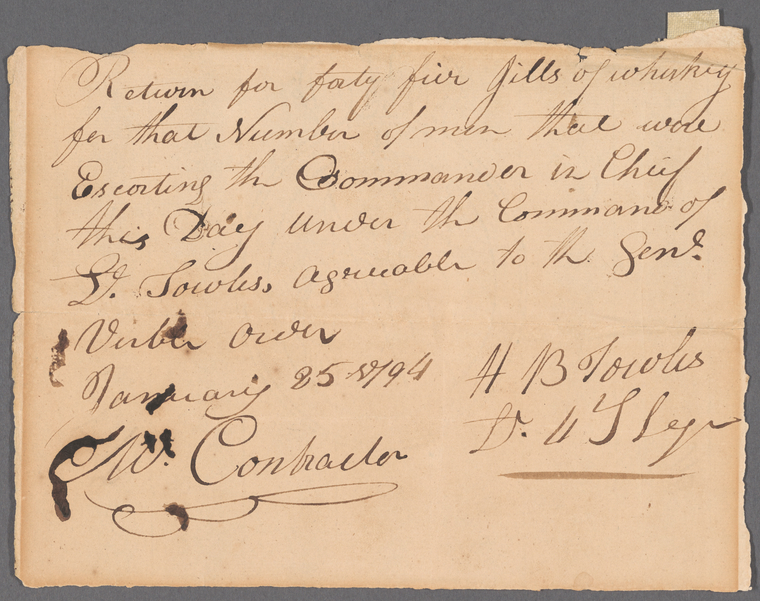 Return for forty five Jills of whiskey
for that Number of men that wore
Escorting the Commander in Chief
this Day under the Command of
Lt. Towles, agreeable to the Genl.
Verble order
January 25th 1794
Mr. Contractor
H B Towles
Lt. 4 S Legn